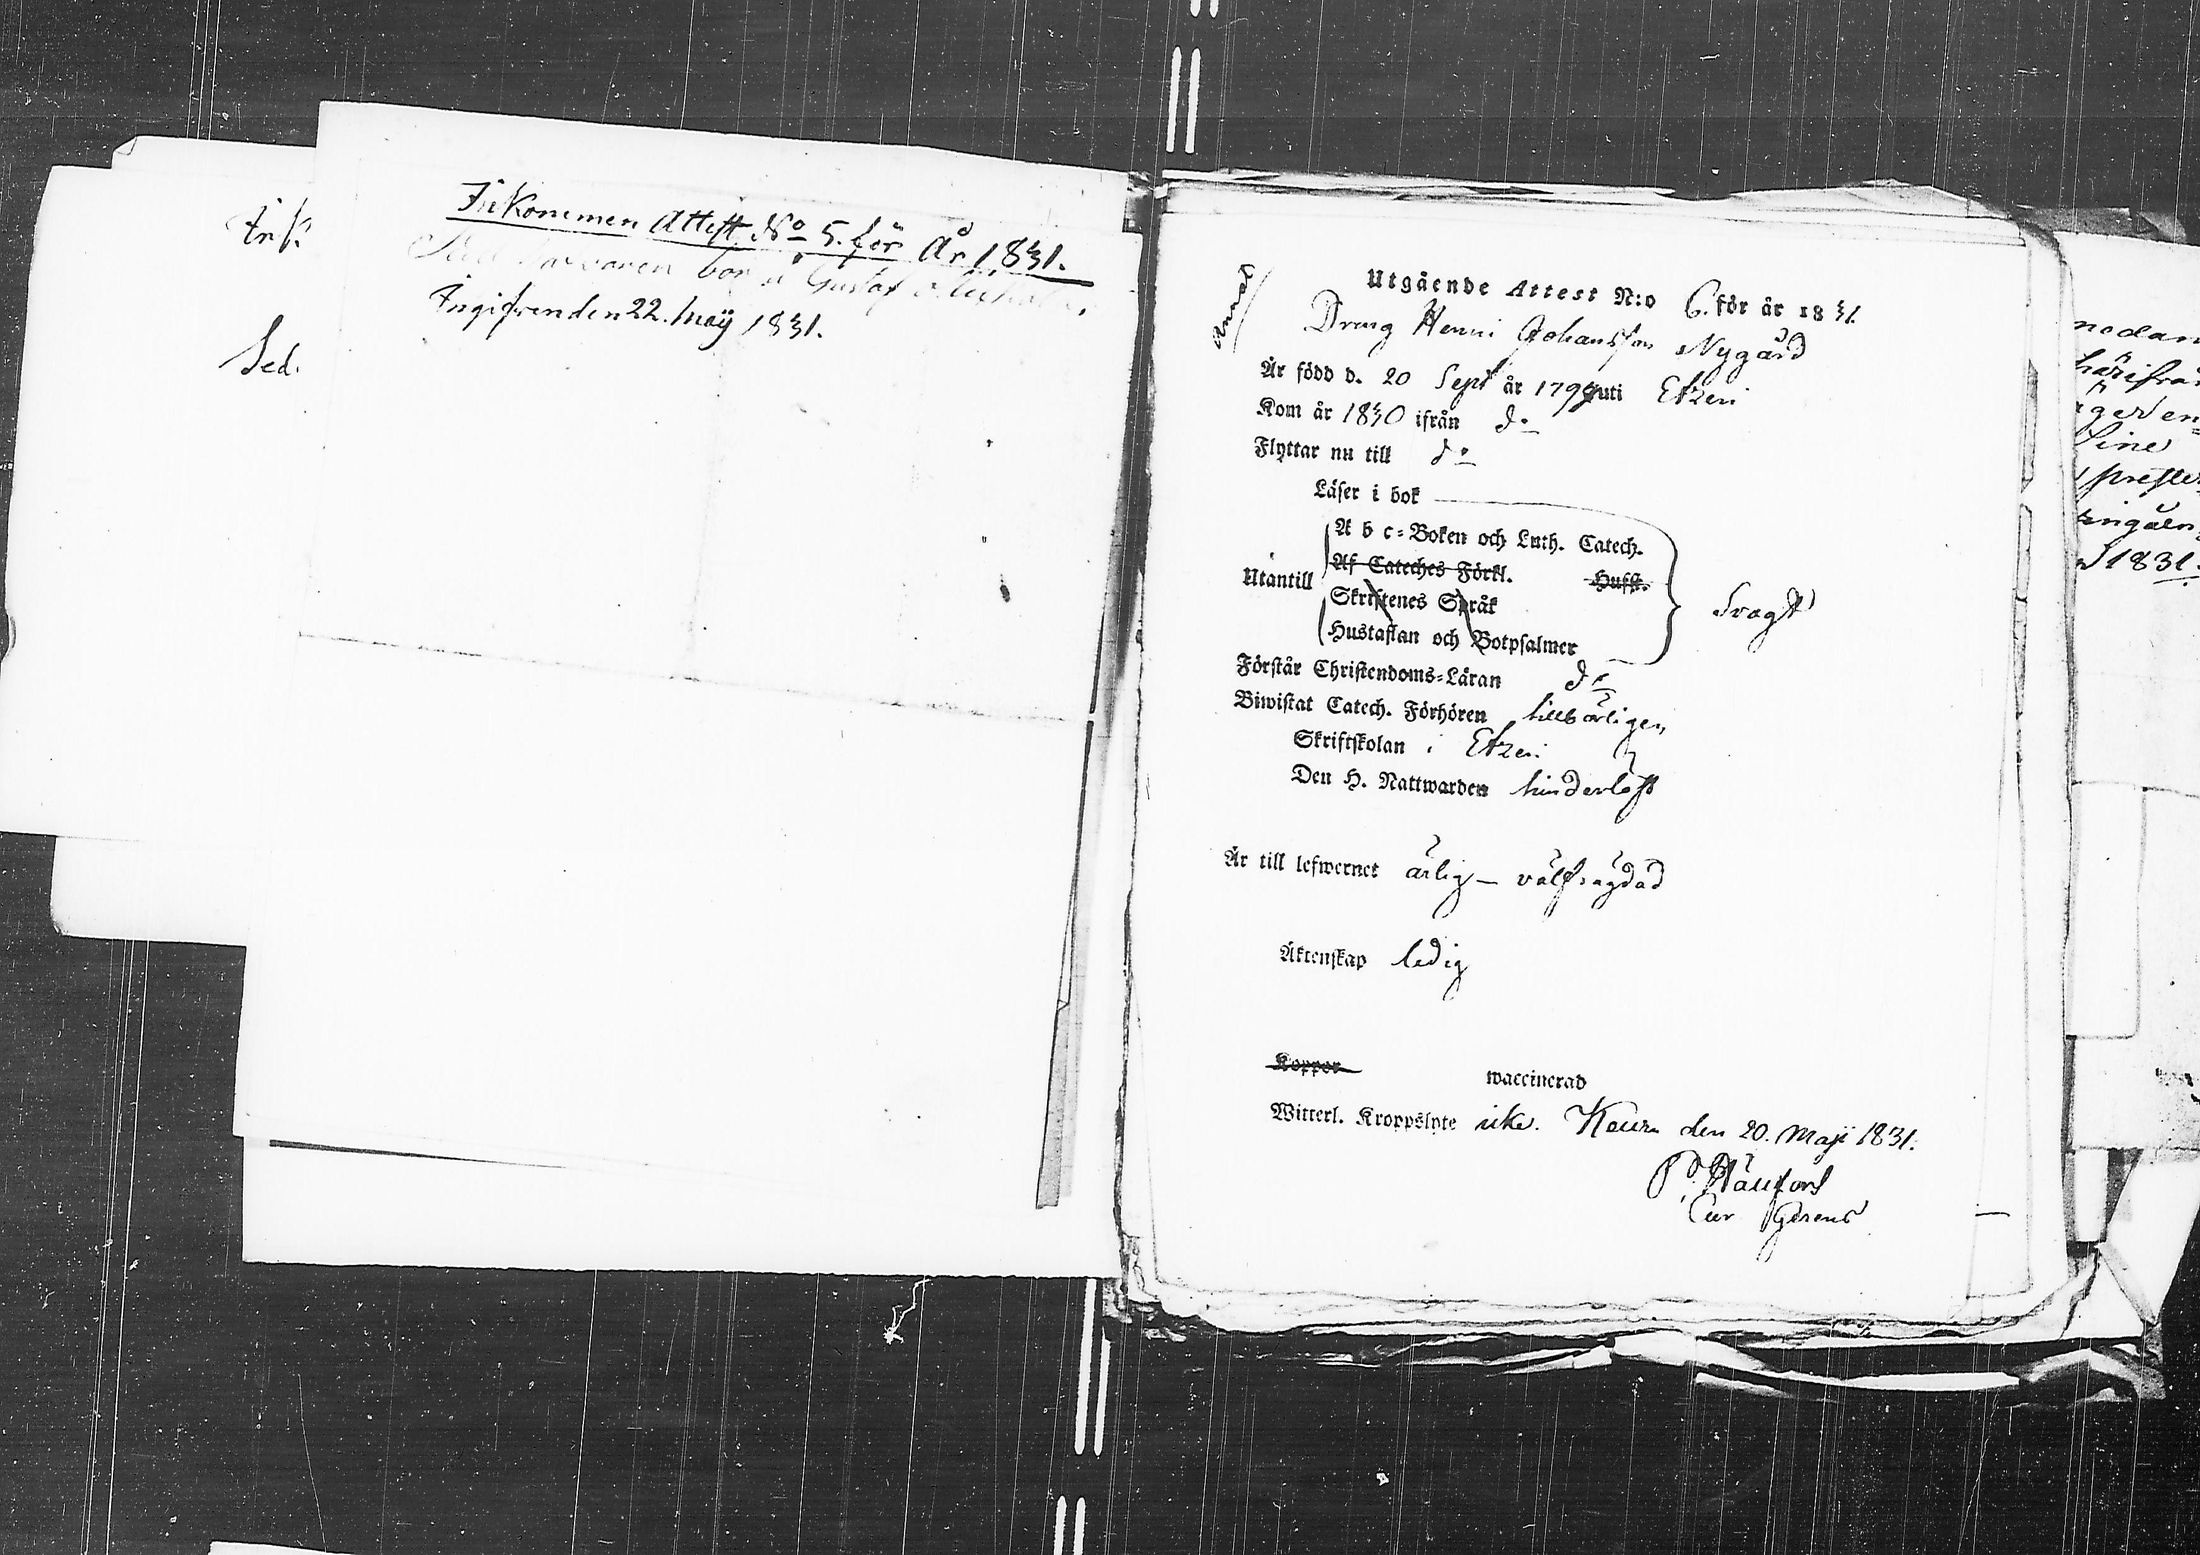 Ink.
Sed.
Inkommen Attest No 5. för År 1831.
bor å Gustaf
Ingifven den 22. Maij 1831.
Utgående Attest N:o 6. för år 1831.
Dreng Henric Johansson Nygård
Är född d. 20 Sept år 1797 uti Etzeri
Kom år 1830 ifrån do
Flyttar nu till do
Läser i bok
A b c-Boken och Luth. Catech.
Af Cateches Förkl. Husft.
Utantill
Skriftenes Språk
Hustaflan och Botpsalmer
Svagt
Förstår Christendoms-Läran do
Biwistat Catech. Förhören tillbörligen
Skriftskolan i Etzeri
Den H. Nattwarden hinderlöst
Är till lefwernet ärlig - välfrägdad
Äktenskap ledig
Koppor waccinerad
Witterl. Kroppslyte icke. Keuru den 20. Maji 1831.
Cur Gerens
nedan
härifrån
äger en
Sine
preste
ingåen
1831.